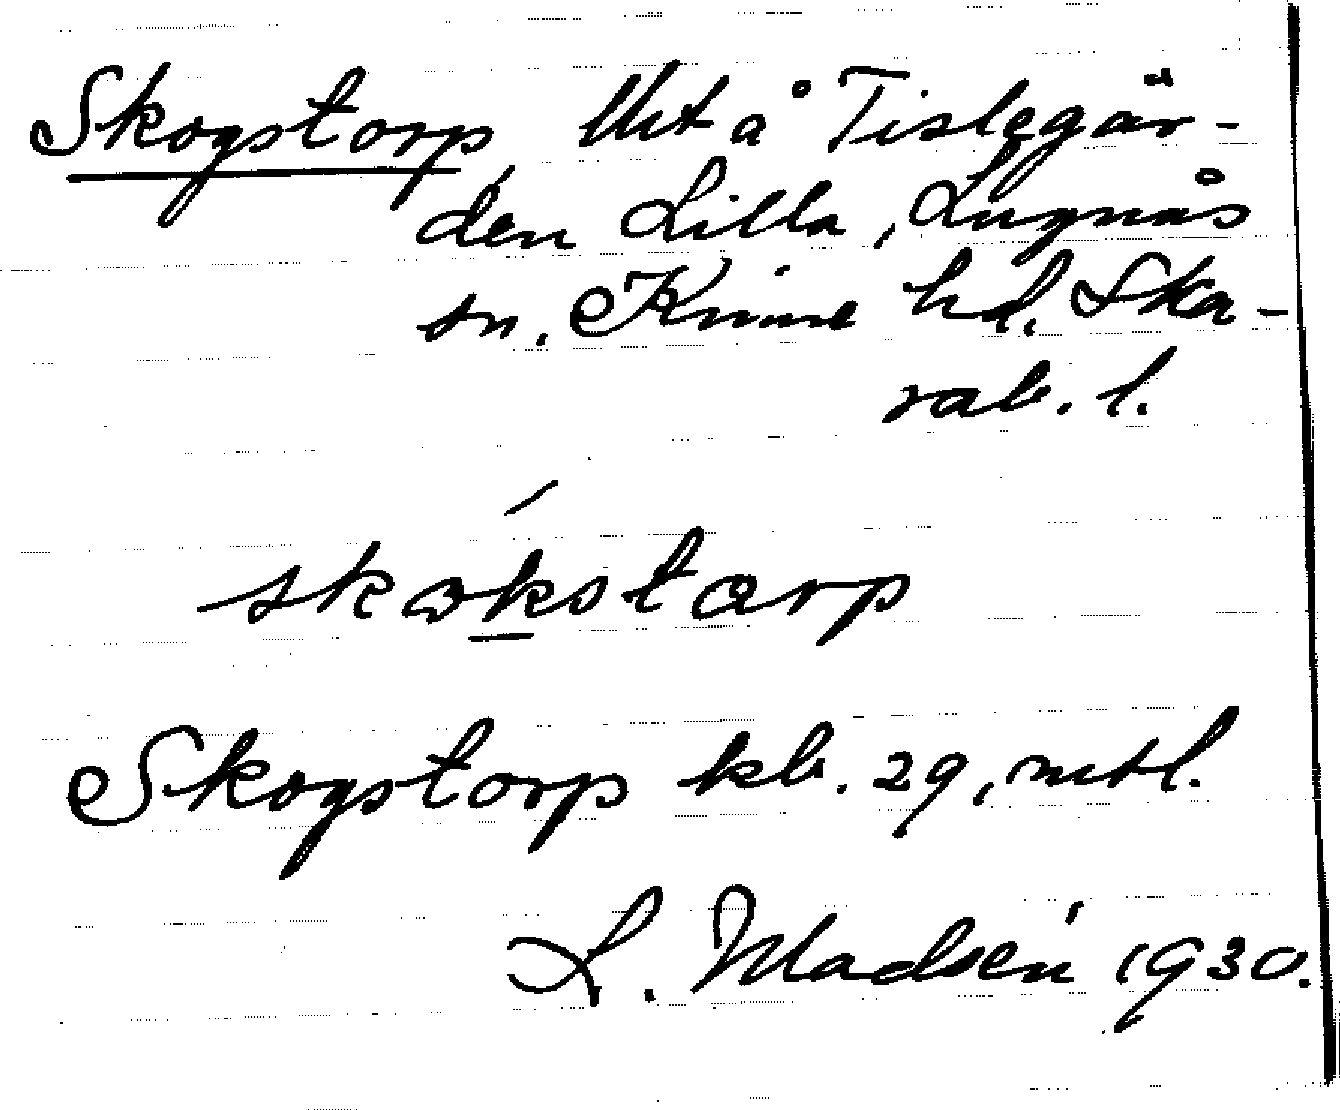 Skogstorp, Utt å Tislegår-
den Lilla, Lugnås
sn. Kinne hd. Ska-
rab. l.
skɷkstɑrp
Skogstorp kb. 29, mtl.
L. Madsén 1930.